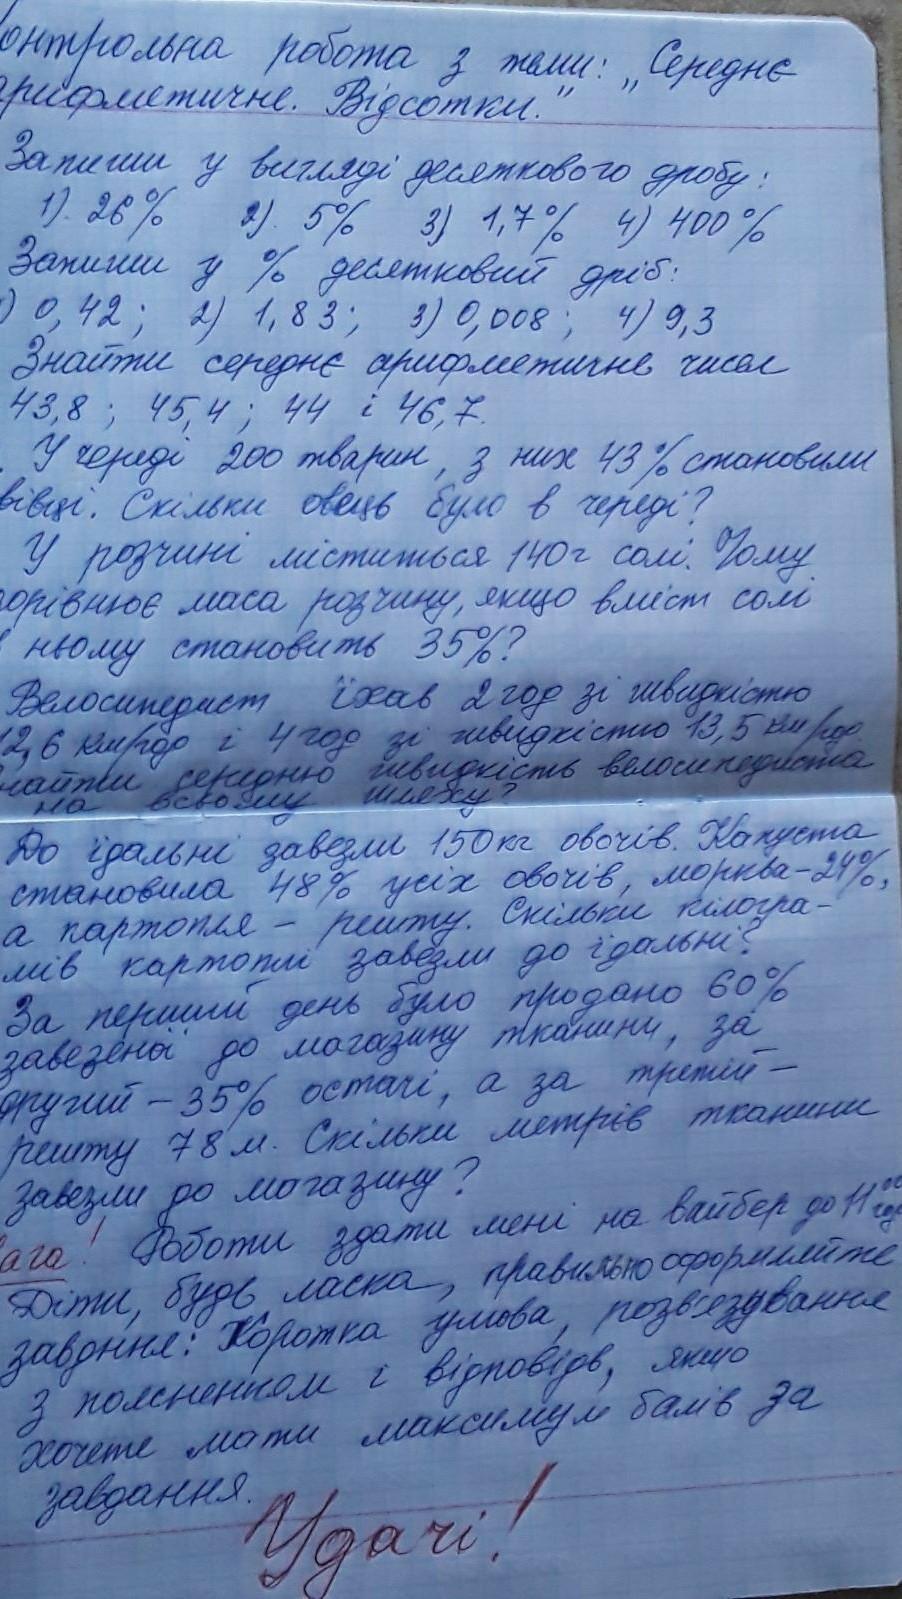 онтрольна робота з теми: „Середнє
арифметичне. Відсотки."
Запиши у вигляді десяткового дробу:
1). 26% 2). 5% 3) 1,7% 4) 400%
Запиши у % десятковий дріб:
) 0,42; 2) 1,83; 3) 0,008; 4) 9,3
Знайти середнє арифметичне чисел
43,8; 45,4; 44 і 46,7.
. У череді 200 тварин, з них 43% становили
вівці. Скільки овець було в череді?
У розчині міститься 140 г солі. Чому
дорівнює маса розчину, якщо вміст солі
в ньому становить 35%?
Велосипедист їхав 2 год зі швидкістю
12,6 км/год і 4 год зі швидкістю 13,5 км/год.
найти середню швидкість велосипедиста
на всьому шляху?
До їдальні завезли 150 кг овочів. Капуста
становила 48% усіх овочів, морква – 24%,
а картопля – решту. Скільки кілогра-
мів картоплі завезли до їдальні?
За перший день було продано 60%
завезеної до магазину тканини, за
другий – 35% остачі, а за третій –
решту 78 м. Скільки метрів тканини
завезли до магазину?
вага! Роботи здати мені на вайбер до 11⁰⁰ год
Діти, будь ласка, правильно оформляйте
завдння: Коротка умова, розв'язування
з поясненням і відповідь, якщо
хочете мати максимум балів за
завдання.
Удачі!